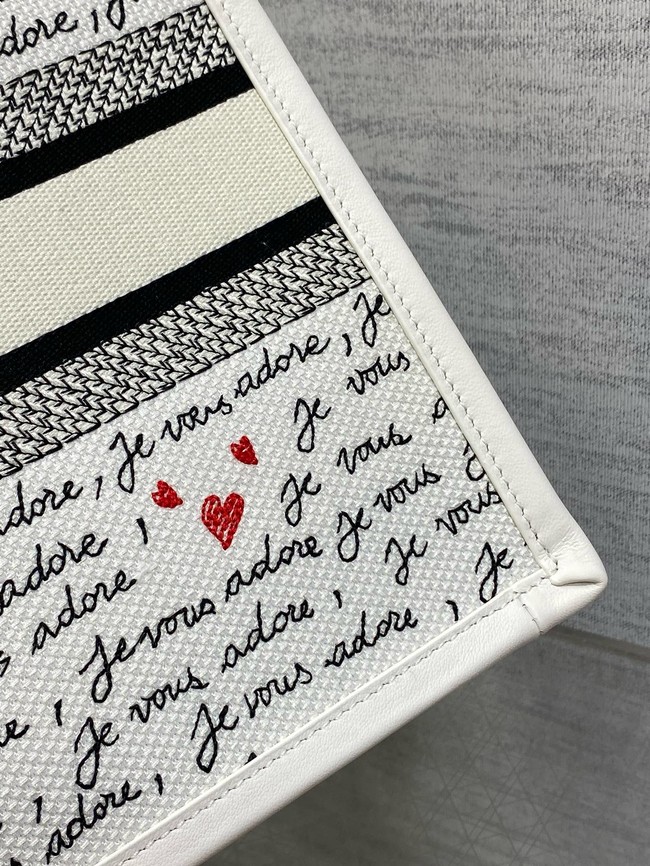 adore, Je
adore, Je vous adore, Je
adore, Je vous
adore Je vous
, Je vous adore Je vous
, Je vous adore, Je vous
, Je vous adore, Je
adore,